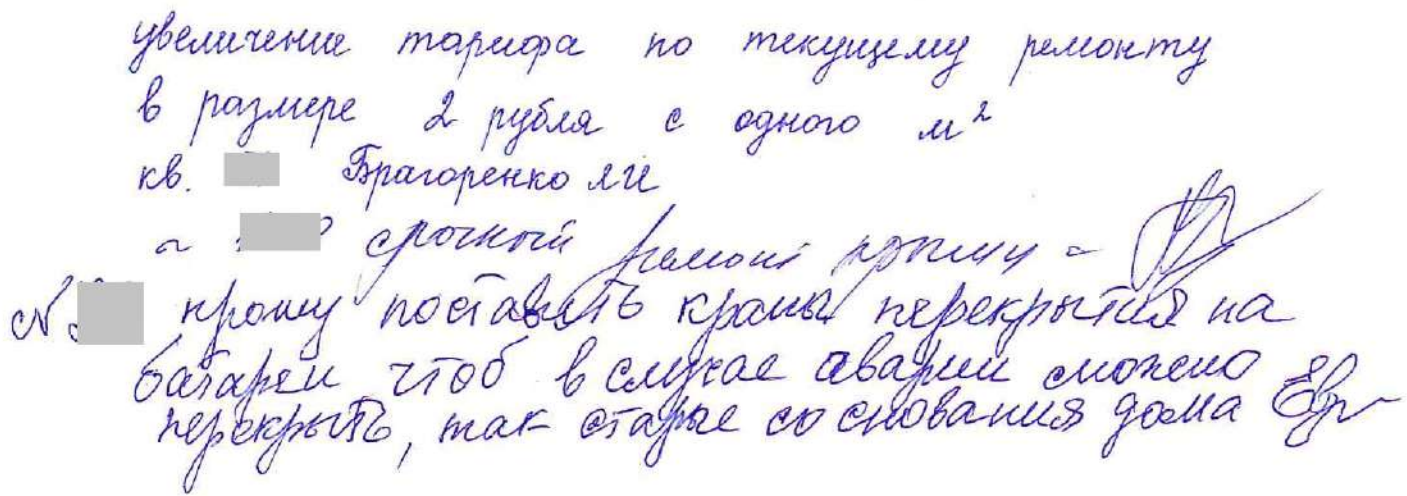 увеличение тарифа по текущему ремонту
в размере 2 рубля с одного м²
кв. Брагоренко
срочный ремонт крыши -
№ прошу поставить краны перекрытия на
батареи чтоб в случае аварии можно
перекрыть, так старые со снования дома